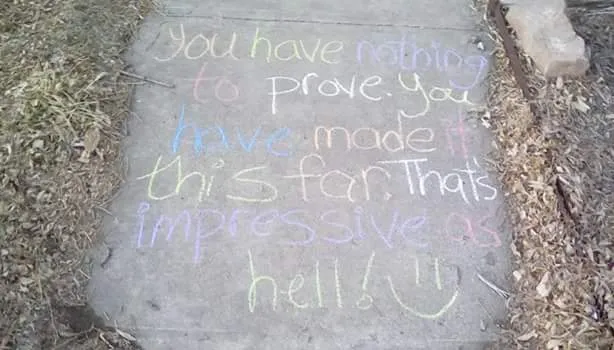 You have nothing
to prove. You
have made it
this far. That's
impressive as
hell! :)